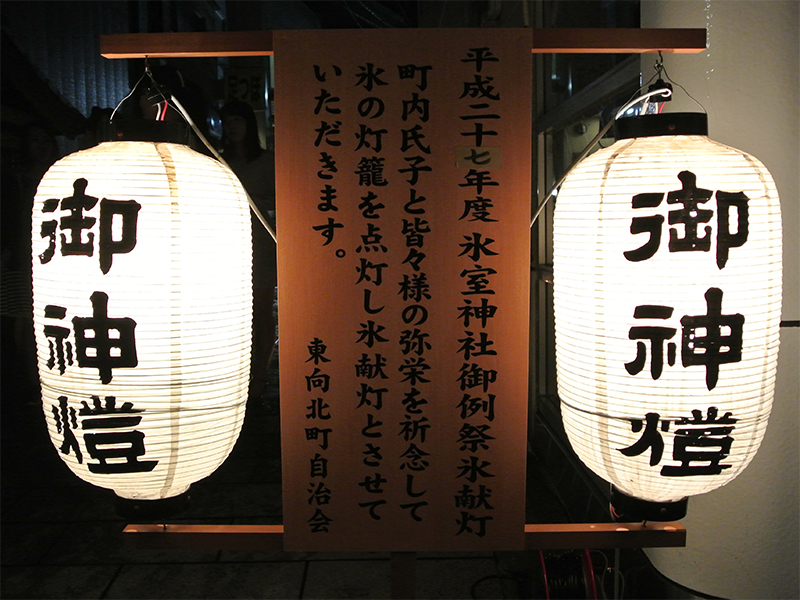 平成二十七年度 氷室神社御例祭氷献灯
町内氏子と皆々様の弥栄を祈念して
氷の灯籠を点灯し氷献灯とさせて
いただきます。
東向北町自治会
御神燈
御神燈